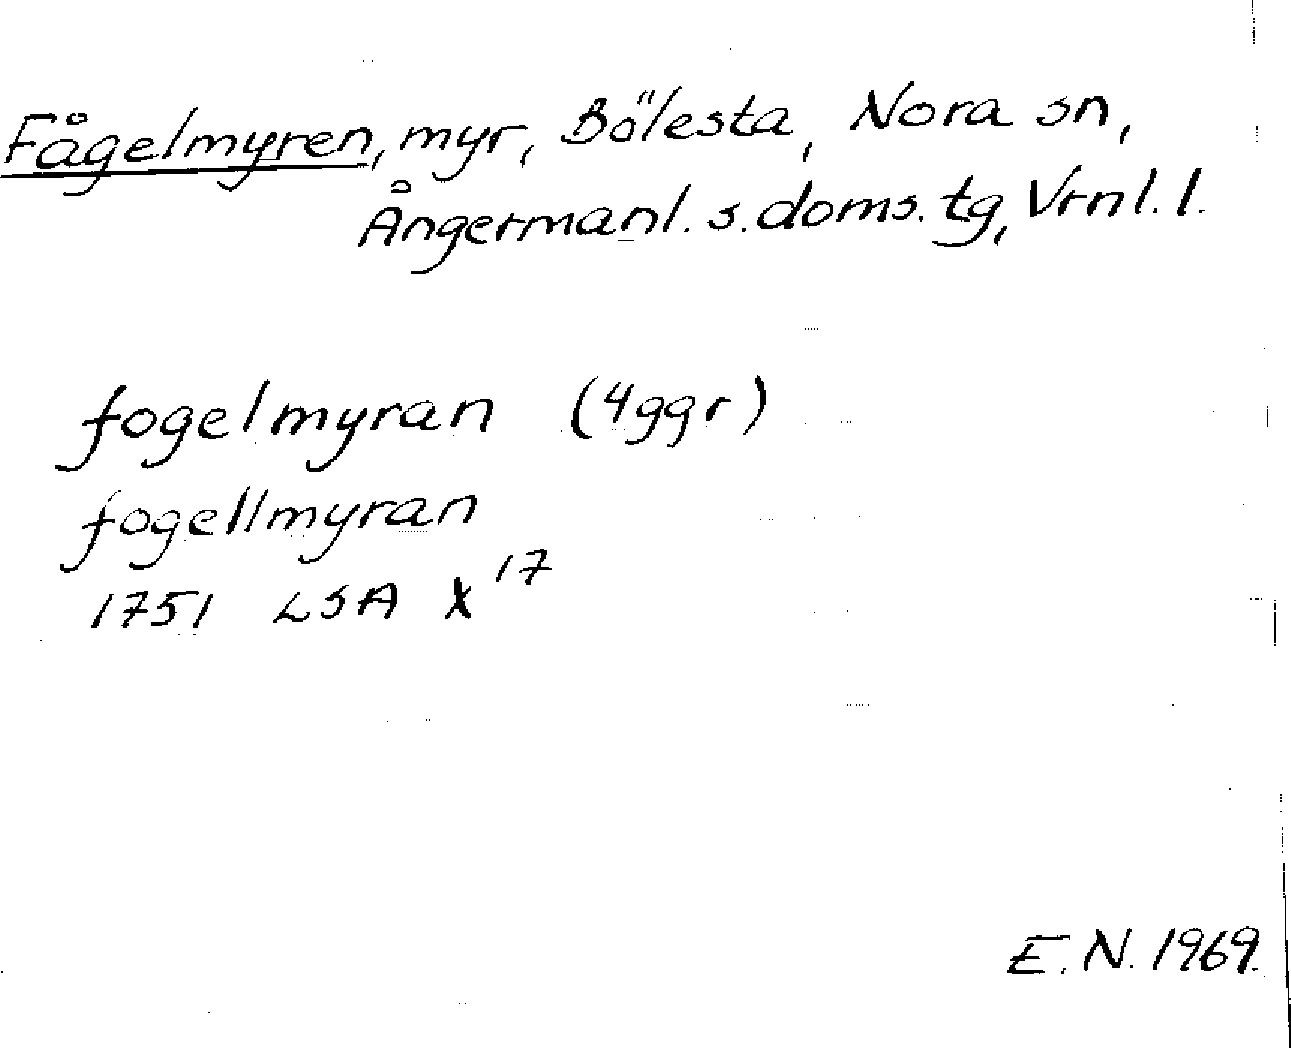 Fågelmyren, myr, Bölesta, Nora sn,
Ångermanl. s. doms. tg, Vrnl. l.
fogelmyran (4ggr)
fogellmyran
1751 LSA X 17
E. N. 1969.